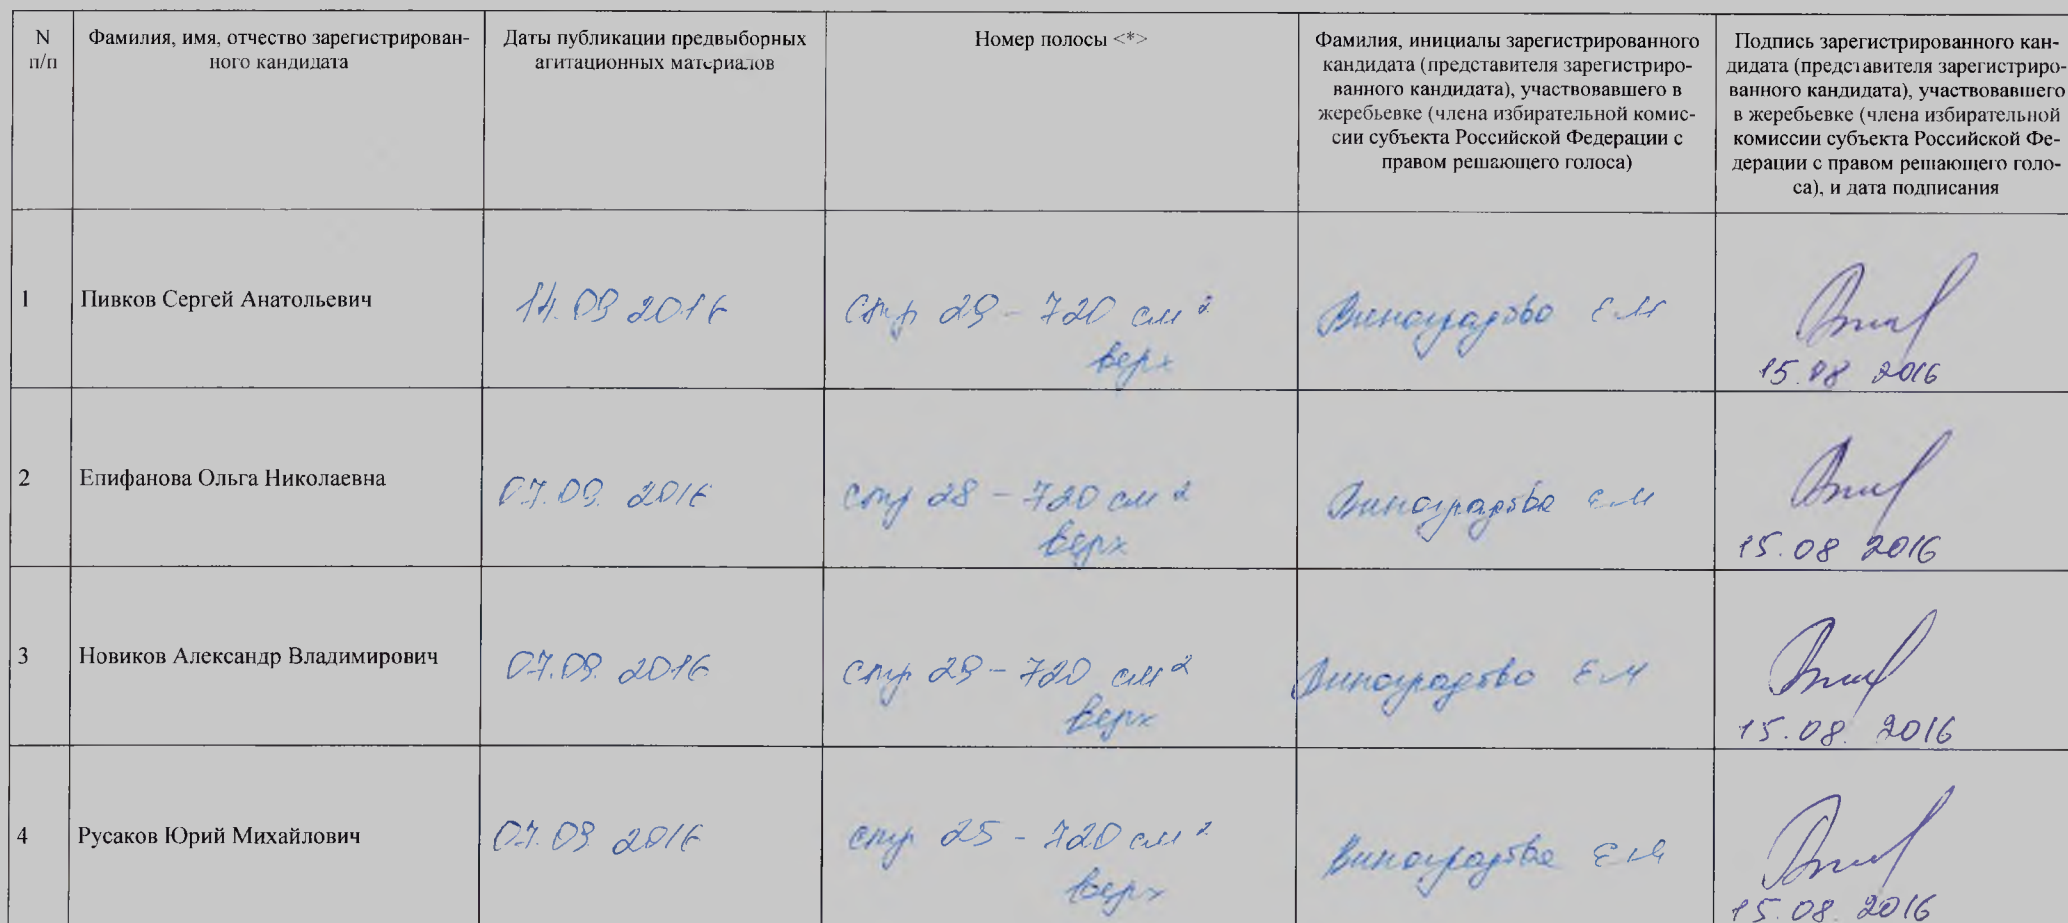 N
п/п
Фамилия, имя, отчество зарегистрирован-
ного кандидата
Даты публикации предвыборных
агитационных материалов
Номер полосы <*>
Фамилия, инициалы зарегистрированного
кандидата (представителя зарегистриро-
ванного кандидата), участвовавшего в
жеребьевке (члена избирательной комис-
сии субъекта Российской Федерации с
правом решающего голоса)
Подпись зарегистрированного кан-
дидата (представителя зарегистриро-
ванного кандидата), участвовавшего
в жеребьевке (члена избирательной
комиссии субъекта Российской Фе-
дерации с правом решающего голо-
са), и дата подписания
1
Пивков Сергей Анатольевич
14.09 2016
стр 29 - 720 см²
верх
Виноградова ЕМ
15.08 2016
2
Епифанова Ольга Николаевна
07.09. 2016
стр 28 - 720 см²
верх
Виноградова ЕМ
15.08 2016
3
Новиков Александр Владимирович
07.09. 2016
стр 29 - 720 см²
верх
Виноградова ЕМ
15.08. 2016
4
Русаков Юрий Михайлович
07.09 2016
стр 25 - 720 см²
верх
Виноградова ЕМ
15.08. 2016